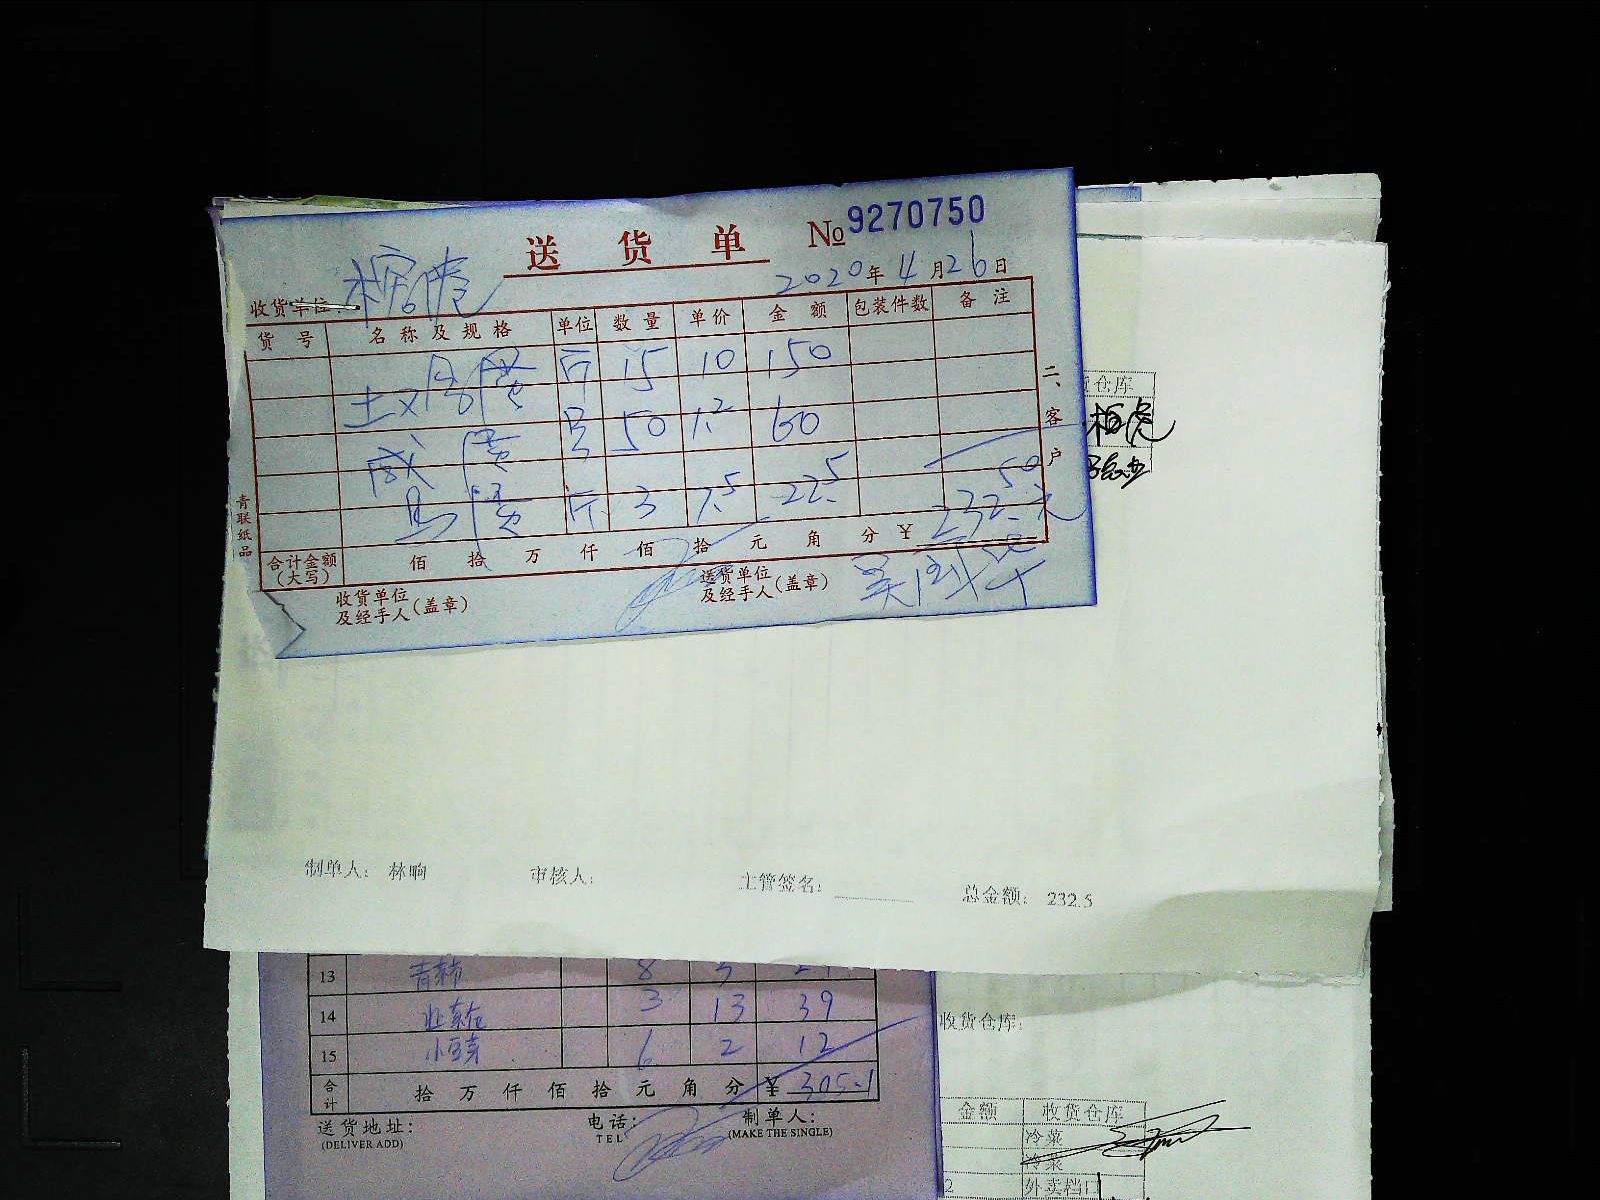 送货单 №9270750
2020年4月26日
收货单位：
货号 名称及规格 单位 数量 单价 金额 包装件数 备注
土又鸟蛋 斤 15 10 150
咸蛋 只 50 1.2 60
鸟蛋 斤 3 7.5 22.5
232.50元
合计金额（大写） 佰拾万仟佰拾元角分 ¥
收货单位及经手人（盖章） 送货单位及经手人（盖章）
二、客户
青联纸品
货仓库
制单人： 林晌 审核人： 主管签名： 总金额： 232.5
13 8
14 3 13 39
15 小豆芽 6 2 12
合计 拾万仟佰拾元角分 ¥ 305.1
送货地址： 电话： 制单人：
(DELIVER ADD) TEL (MAKE THE SINGLE)
收货仓库：
金额 收货仓库
冷菜
冷菜
2 外卖档口